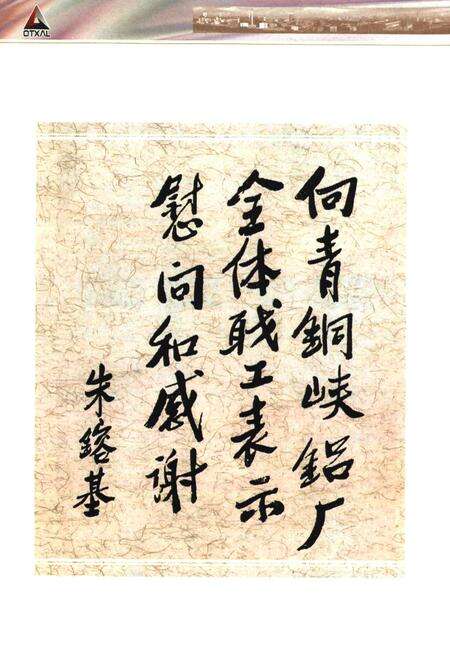 QTXAL
向青銅峡鋁厂
全体职工表示
慰问和感谢
朱鎔基